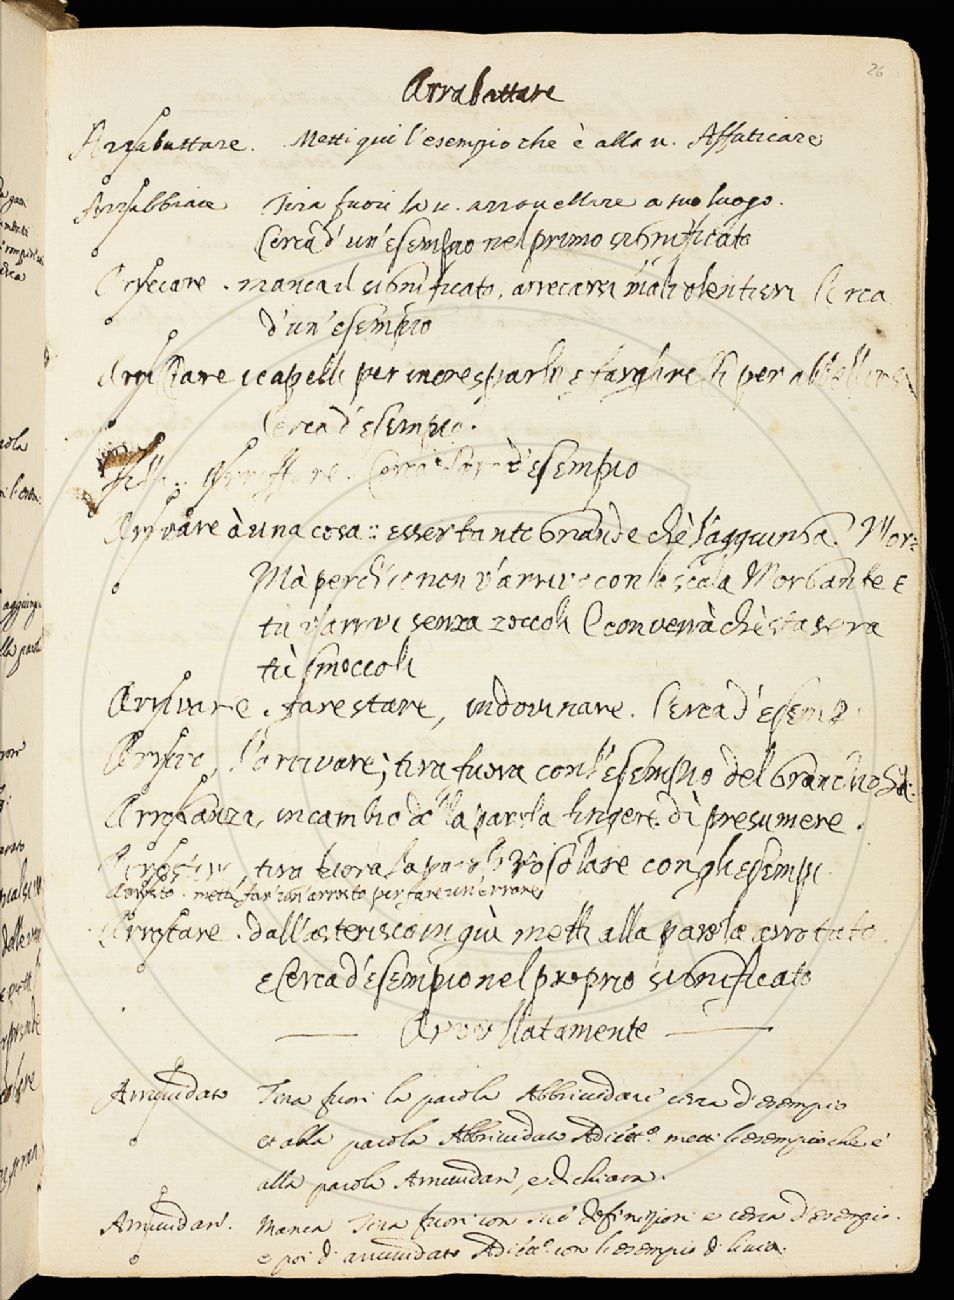 26
Arrabattare
Arrabattare. Metti qui l'esempio che è alla v. Affaticare
Arrabbiare Tira fuori la v. arrovellare a suo luogo.
Cerca d'un'esempio nel primo significato
Arrecare. manca il significato, arrecarsi mal volentieri Cerca
d'un'esempio
Arricciare i capelli per increspargli e fargli ricci per abbellirsi
Cerca d'esempio.
Cerca d'esempio
Arrivare à una cosa :: esser tanto grande chè s'aggiunga. Mor=
Mà perch'io non v'arrivo con la scala Morgante e
tù v'arrivi senza zoccoli E converrà chè stasera
tù smoccoli
Arrivare. fare stare, indovinare. Cerca d'esemp
Arrivo, l'arrivare; tira fuora con l'esempio del
Arroganza, in cambio della parola fingere dì presumere.
Arrostire, tira fuora la parola Rosolare con gli esempi
Arrosto. metti far un arrosto per fare un'errore
Arrotare. dall'asterisco in giù metti alla parola arrotato
e Cerca d'esempio nel proprio significato
Arrovellatamente
Arruvidato Tira fuori la parola Abbruvidare cerca d'esempio
et alla parola Abbruvidato Add. metti l'esempio che è
alla parola Arruvidare, e dichiara.
Arruvidare. Manca Tira fuori con sue definizioni e cerca d'esempio.
e poi di arruvidato Add. con l'esempio di